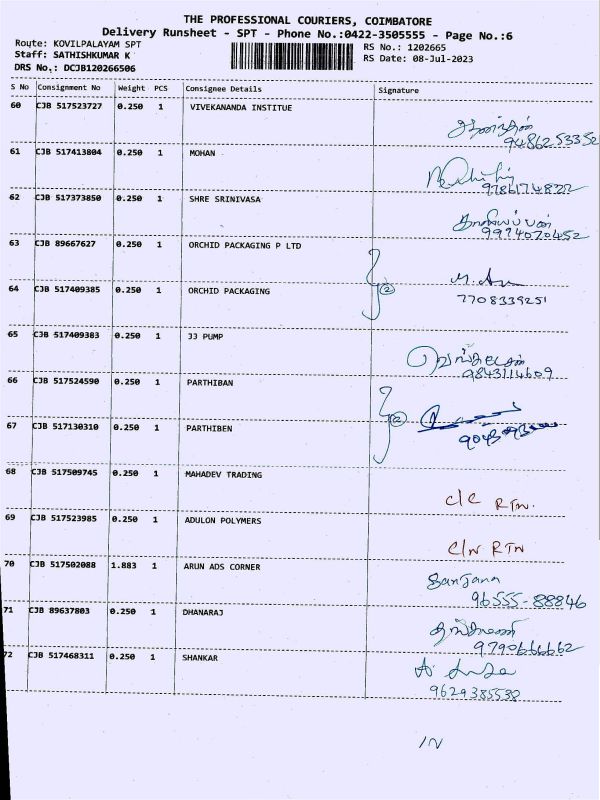 THE PROFESSIONAL COURIERS, COIMBATORE
Delivery Runsheet - SPT - Phone No.:0422-3505555 - Page No.:6
Route: KOVILPALAYAM SPT
Staff: SATHISHKUMAR K
DRS No.: DCJB120266506
RS No.: 1202665
RS Date: 08-Jul-2023
S No Consignment No Weight PCS Consignee Details Signature
60 CJB 517523727 0.250 1 VIVEKANANDA INSTITUE
9486253352
61 CJB 517413804 0.250 1 MOHAN
9786174822
62 CJB 517373850 0.250 1 SHRE SRINIVASA
9974070452
63 CJB 89667627 0.250 1 ORCHID PACKAGING P LTD
64 CJB 517409385 0.250 1 ORCHID PACKAGING
2
7708339251
65 CJB 517409383 0.250 1 JJ PUMP
9843114609
66 CJB 517524590 0.250 1 PARTHIBAN
67 CJB 517130310 0.250 1 PARTHIBEN
2
68 CJB 517509745 0.250 1 MAHADEV TRADING
C/C RTN.
69 CJB 517523985 0.250 1 ADULON POLYMERS
C/N RTN
70 CJB 517502088 1.883 1 ARUN ADS CORNER
Sanjana
96555-88846
71 CJB 89637803 0.250 1 DHANARAJ
9790666662
72 CJB 517468311 0.250 1 SHANKAR
9629385530